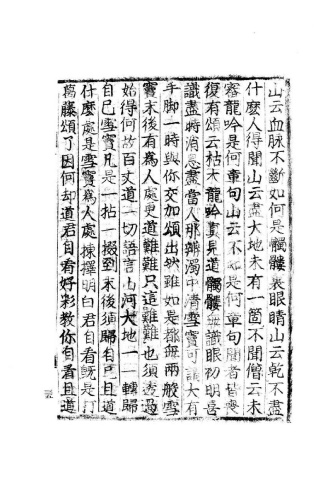 山云血脉不斷如何是髑髏裏眼睛山云乾不盡
什麽人得聞山云盡大地未有一箇不聞僧云未
審龍吟是何章句山云不知是何章句聞者皆喪
復有頌云枯木龍吟眞見道髑髏無識眼初明喜
識盡時消息盡當人那辨濁中清雪竇可謂大有
手脚一時與你交加頌出然雖如是都無兩般雪
竇末後有爲人處更道難難只這難難也須透過
始得何故百丈道一切語言山河大地一一轉歸
自己雪竇凡是一拈一掇到末後須歸自己且道
什麽處是雪竇爲人處揀擇明白君自看旣是打
葛藤頌了因何却道君自看好彩教你自看且道